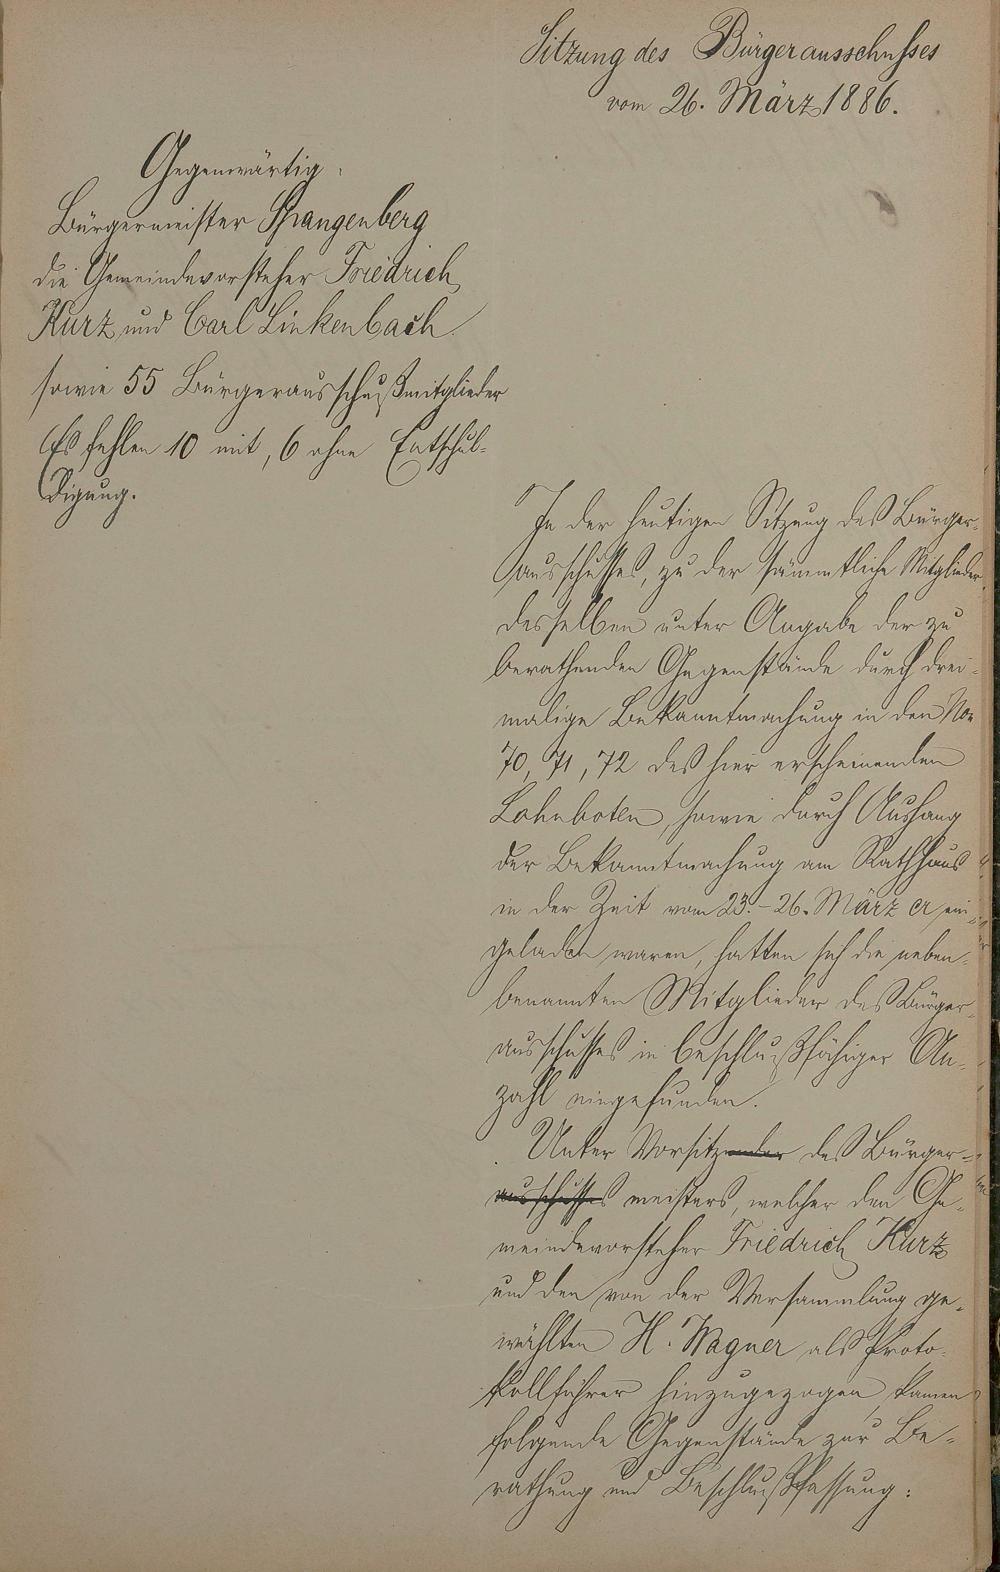 Sitzung des Bürgerausschusses
vom 26. März 1886.
Gegenwärtig.
Bürgermeister Spangenberg
die Gemeindevorsteher Friedrich
Kurz und Carl Linkenbach
sowie 55 Bürgerausschußmitglieder
Es fehlen 10 mit, 6 ohne Entschul-
digung.
In der heutigen Sitzung des Bürger-
ausschusses, zu der sämmtliche Mitglieder
desselben unter Angabe der zu
berathenden Gegenstände durch drei-
malige Bekanntmachung in den No
70, 71, 72 des hier erscheinenden
Lahnboten, sowie durch Aushang
der Bekanntmachung am Rathhaus
in der Zeit vom 23.-26. März cr ein-
geladen waren, hatten sich die neben-
benannten Mitglieder des Bürger-
ausschusses in beschlußfähiger An-
zahl eingefunden.
Unter Vorsitzender des Bürger-
ausschusses meisters, welcher den Ge-
meindevorsteher Friedrich Kurz
und den von der Versammlung ge-
wählten H. Wagner als Proto-
kollführer hinzugezogen, kamen
folgende Gegenstände zur Be-
rathung und Beschlußfassung: